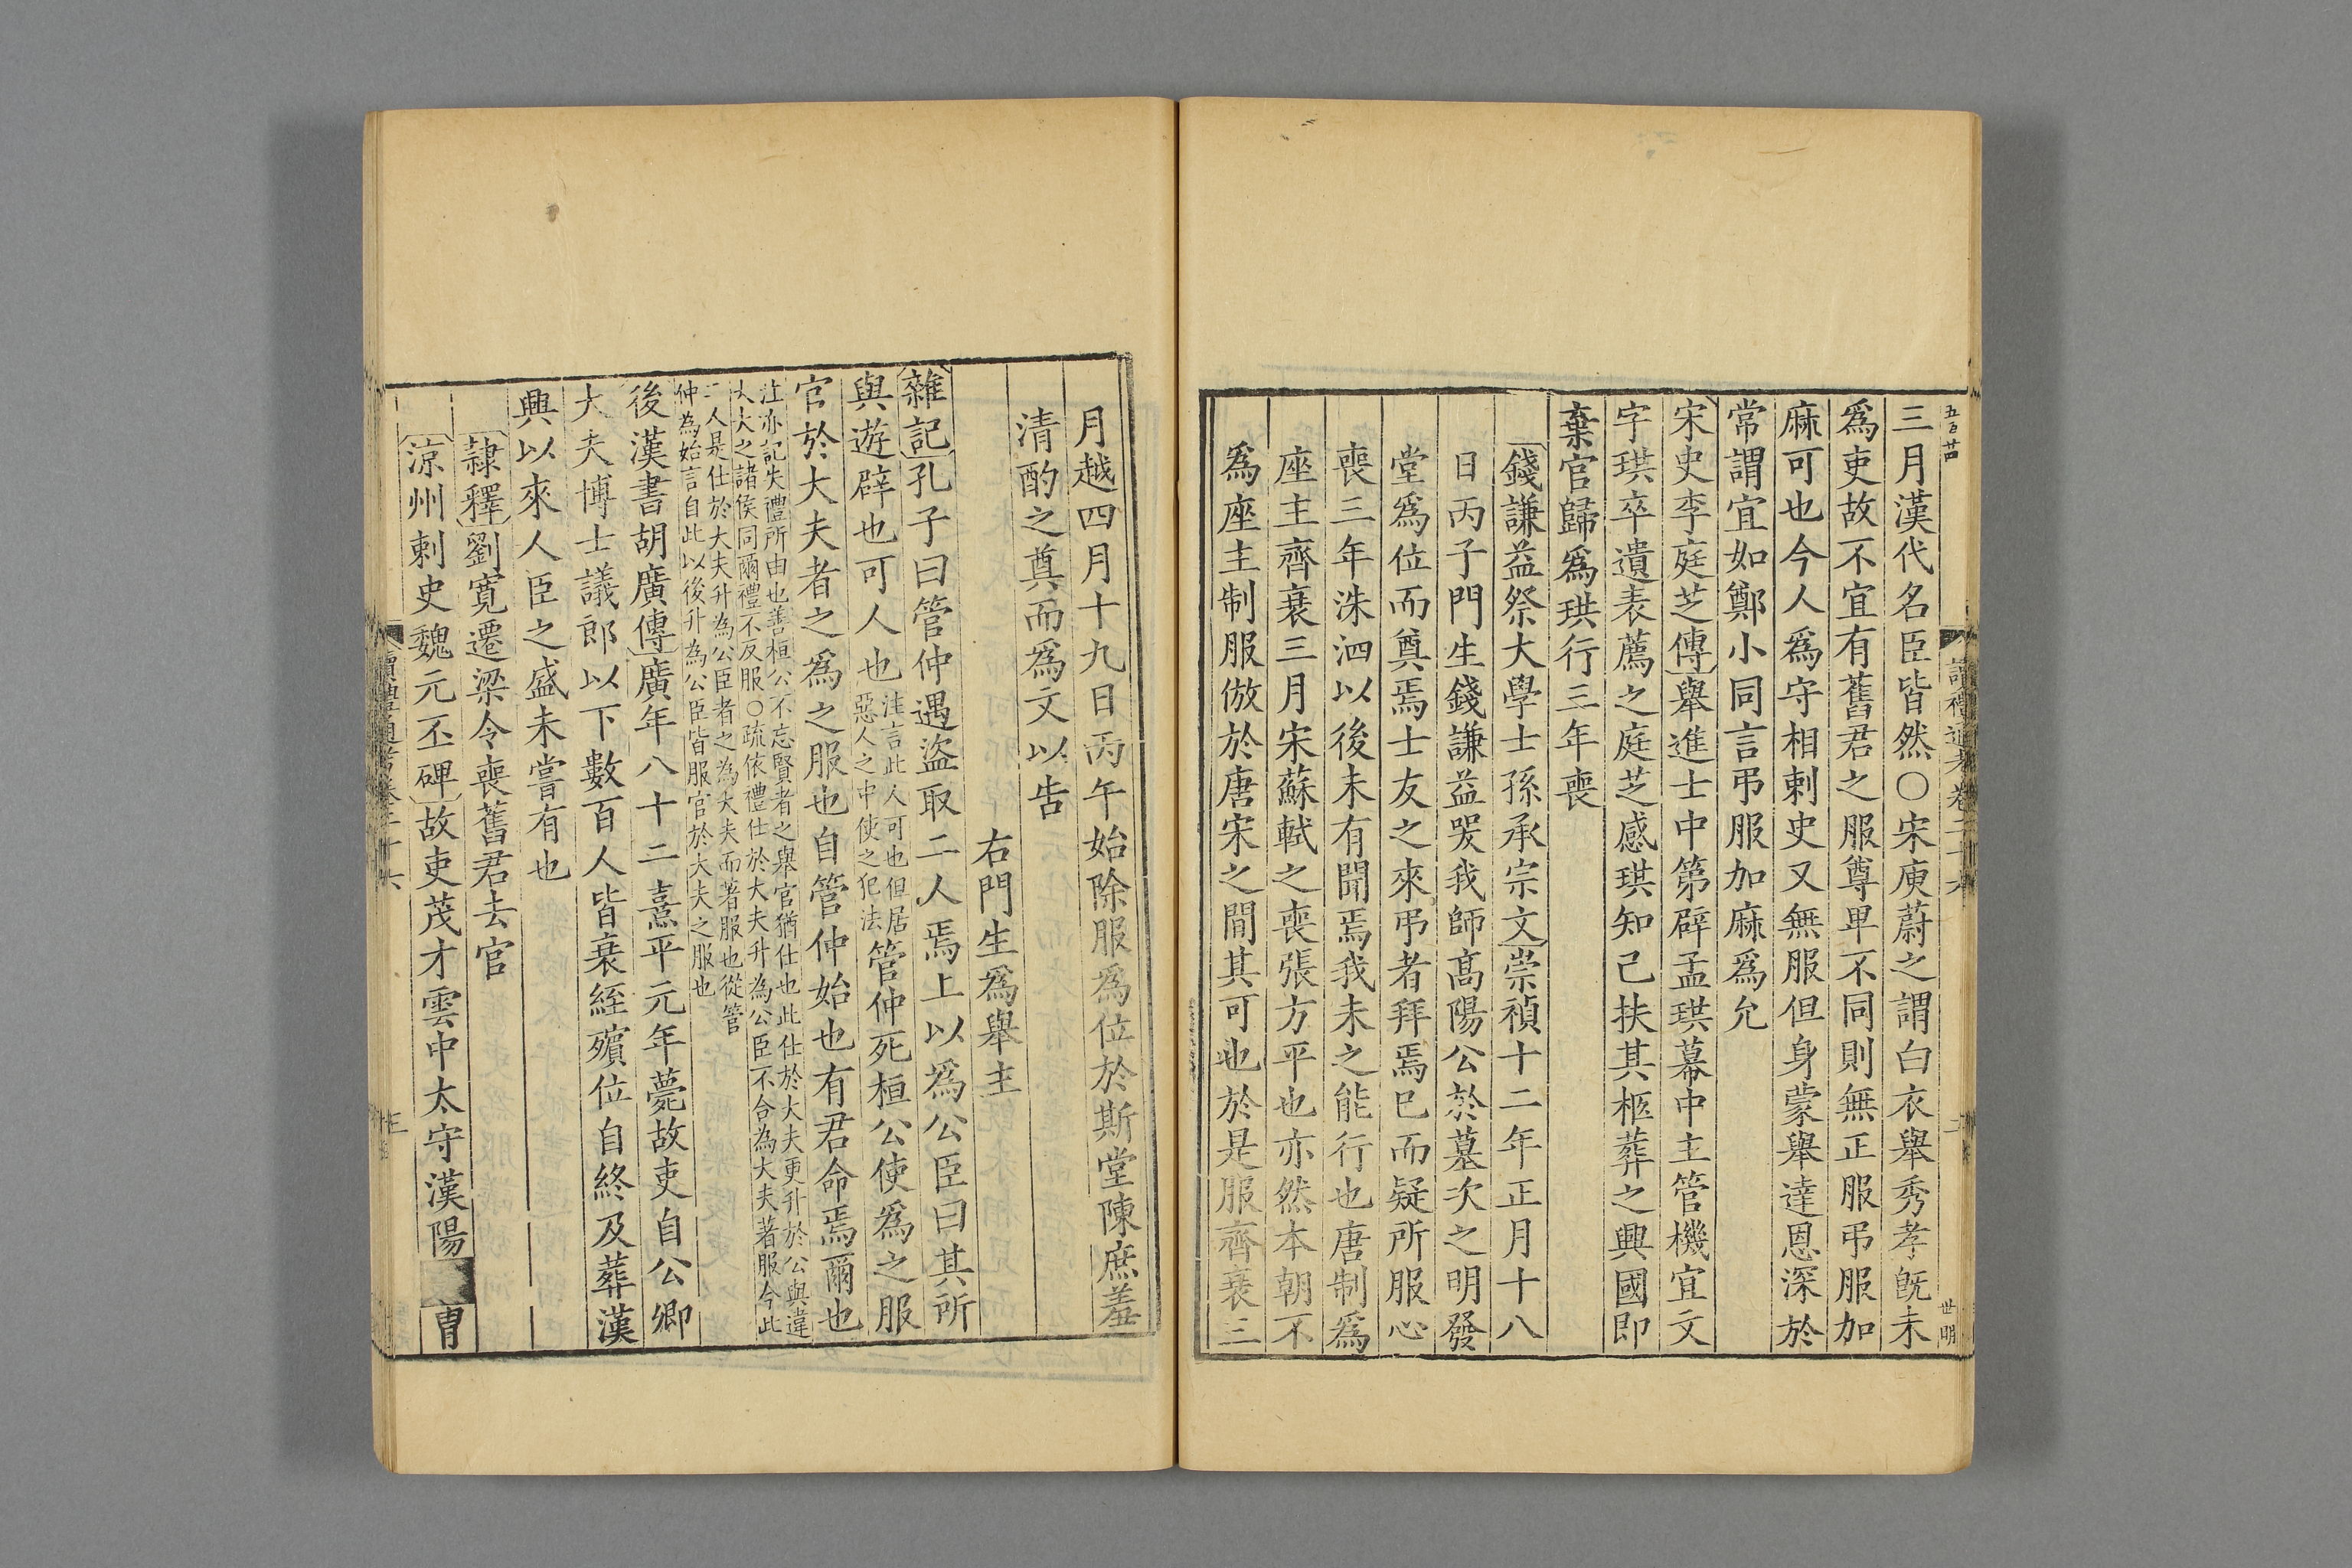 五百廿四
讀禮通考卷二十六
世明
三月漢代名臣皆然○宋庾蔚之謂白衣舉秀孝旣未
爲吏故不宜有舊君之服尊卑不同則無正服弔服加
麻可也今人爲守相刺史又無服但身蒙舉達恩深於
常謂宜如鄭小同言弔服加麻爲允
宋史李庭芝傳舉進士中第辟孟珙幕中主管機宜文
字珙卒遺表薦之庭芝感珙知己扶其柩葬之興國即
棄官歸爲珙行三年喪
錢謙益祭大學士孫承宗文崇禎十二年正月十八
日丙子門生錢謙益哭我師高陽公於墓次之明發
堂爲位而奠焉士友之來弔者拜焉已而疑所服心
喪三年洙泗以後未有聞焉我未之能行也唐制爲
座主齊衰三月宋蘇軾之喪張方平也亦然本朝不
爲座主制服倣於唐宋之間其可也於是服齊衰三
月越四月十九日丙午始除服爲位於斯堂陳庶羞
清酌之奠而爲文以告
右門生爲舉主
雜記孔子曰管仲遇盜取二人焉上以爲公臣曰其所
與遊辟也可人也注言此人可也但居惡人之中使之犯法管仲死桓公使爲之服
官於大夫者之爲之服也自管仲始也有君命焉爾也
注亦記失禮所由也善桓公不忘賢者之舉官猶仕也此仕於大夫更升於公與違
大夫之諸侯同爾禮不反服○疏依禮仕於大夫升為公臣不合為大夫著服今此
二人是仕於大夫升為公臣者之為大夫而著服也從管
仲為始言自此以後升為公臣皆服官於大夫之服也
後漢書胡廣傳廣年八十二熹平元年薨故吏自公卿
大夫博士議郎以下數百人皆衰絰殯位自終及葬漢
興以來人臣之盛未嘗有也
隷釋劉寬遷梁令喪舊君去官
涼州刺史魏元丕碑故吏茂才雲中太守漢陽 曺
讀禮通考卷二十六